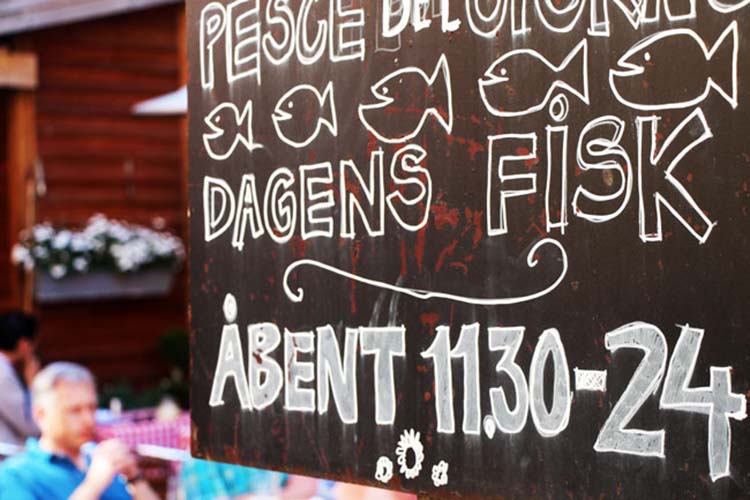 PESCE DEL GIORNO
DAGENS FISK
ÅBENT 11.30-24